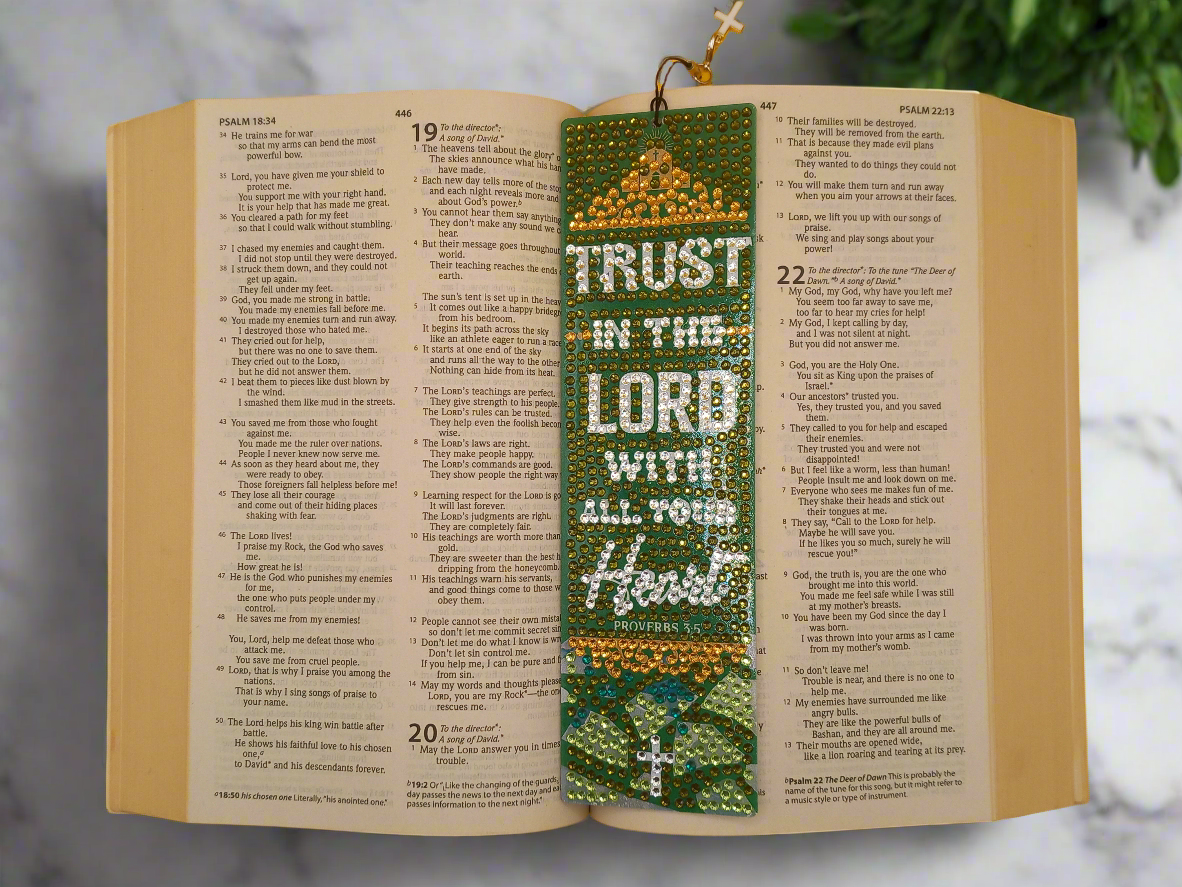 PSALM 18:34
446
34 He trains me for war
so that my arms can bend the most
powerful bow.
35 Lord, you have given me your shield to
protect me.
You support me with your right hand.
It is your help that has made me great.
36 You cleared a path for my feet
so that I could walk without stumbling.
37 I chased my enemies and caught them.
I did not stop until they were destroyed.
38 I struck them down, and they could not
get up again.
They fell under my feet.
39 God, you made me strong in battle.
You made my enemies fall before me.
40 You made my enemies turn and run away.
I destroyed those who hated me.
41 They cried out for help,
but there was no one to save them.
They cried out to the LORD,
but he did not answer them.
42 I beat them to pieces like dust blown by
the wind.
I smashed them like mud in the streets.
43 You saved me from those who fought
against me.
You made me the ruler over nations.
People I never knew now serve me.
44 As soon as they heard about me, they
were ready to obey.
Those foreigners fall helpless before me!
45 They lose all their courage
and come out of their hiding places
shaking with fear.
46 The LORD lives!
I praise my Rock, the God who saves
me.
How great he is!
47 He is the God who punishes my enemies
for me,
the one who puts people under my
control.
48 He saves me from my enemies!
You, Lord, help me defeat those who
attack me.
You save me from cruel people.
49 LORD, that is why I praise you among the
nations.
That is why I sing songs of praise to
your name.
50 The Lord helps his king win battle after
battle.
He shows his faithful love to his chosen
one,a
to David* and his descendants forever.
a18:50 his chosen one Literally, "his anointed one."
19 To the director*:
A song of David.*
1 The heavens tell about the glory*
The skies announce what his
have made.
2 Each new day tells more of the
and each night reveals more and
about God's power.b
3 You cannot hear them say anything
They don't make any sound we
hear.
4 But their message goes throughout
world.
Their teaching reaches the ends
earth.
The sun's tent is set up in the
5 It comes out like a happy
from his bedroom.
It begins its path across the sky
like an athlete eager to run a
6 It starts at one end of the sky
and runs all the way to the other
Nothing can hide from its heat.
7 The LORD's teachings are perfect.
They give strength to his people.
The LORD's rules can be trusted.
They help even the foolish
wise.
8 The LORD's laws are right.
They make people happy.
The LORD's commands are good.
They show people the right way
9 Learning respect for the LORD is
It will last forever.
The LORD's judgments are right.
They are completely fair.
10 His teachings are worth more than
gold.
They are sweeter than the best
dripping from the honeycomb.
11 His teachings warn his servants,
and good things come to those
obey them.
12 People cannot see their own
so don't let me commit secret
13 Don't let me do what I know is
Don't let sin control me.
If you help me, I can be pure and
from sin.
14 May my words and thoughts
LORD, you are my Rock*—the
rescues me.
20 To the director*:
A song of David.*
1 May the LORD answer you in
trouble.
b19:2 Or "Like the changing of the guards,
day passes the news to the next day and
passes information to the next night."
TRUST
IN THE
LORD
WITH
ALL YOUR
Heart
PROVERBS 3:5
447
PSALM 22:13
10 Their families will be destroyed.
They will be removed from the earth.
11 That is because they made evil plans
against you.
They wanted to do things they could not
do.
12 You will make them turn and run away
when you aim your arrows at their faces.
13 LORD, we lift you up with our songs of
praise.
We sing and play songs about your
power!
22 To the director*: To the tune "The Deer of
Dawn."b A song of David.*
1 My God, my God, why have you left me?
You seem too far away to save me,
too far to hear my cries for help!
2 My God, I kept calling by day,
and I was not silent at night.
But you did not answer me.
3 God, you are the Holy One.
You sit as King upon the praises of
Israel.*
4 Our ancestors* trusted you.
Yes, they trusted you, and you saved
them.
5 They called to you for help and escaped
their enemies.
They trusted you and were not
disappointed!
6 But I feel like a worm, less than human!
People insult me and look down on me.
7 Everyone who sees me makes fun of me.
They shake their heads and stick out
their tongues at me.
8 They say, "Call to the LORD for help.
Maybe he will save you.
If he likes you so much, surely he will
rescue you!"
9 God, the truth is, you are the one who
brought me into this world.
You made me feel safe while I was still
at my mother's breasts.
10 You have been my God since the day I
was born.
I was thrown into your arms as I came
from my mother's womb.
11 So don't leave me!
Trouble is near, and there is no one to
help me.
12 My enemies have surrounded me like
angry bulls.
They are like the powerful bulls of
Bashan, and they are all around me.
13 Their mouths are opened wide,
like a lion roaring and tearing at its prey.
bPsalm 22 The Deer of Dawn This is probably the
name of the tune for this song, but it might refer to
a music style or type of instrument.